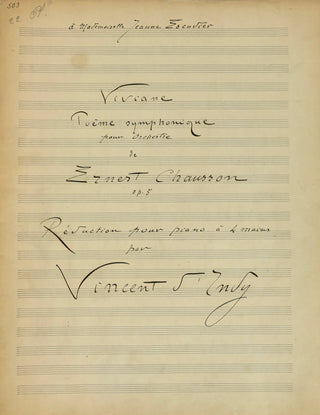 503
22
à Mademoiselle Jeanne Escudier
Viviane
Poëme symphonique
pour Orchestre
de
Ernest Chausson
op. 5
Réduction pour piano à 4 mains
par
Vincent d'Indy